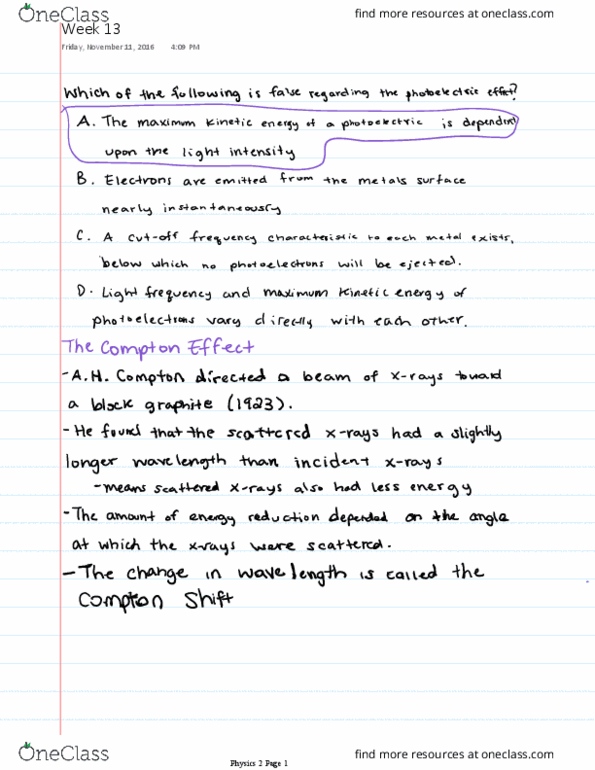 OneClass
find more resources at oneclass.com
Week 13
Friday, November 11, 2016 4:09 PM
Which of the following is false regarding the photoelectric effect?
A. The maximum kinetic energy of a photoelectric is dependent
upon the light intensity
B. Electrons are emitted from the metals surface
nearly instantaneously
C. A cut-off frequency characteristic to each metal exists,
below which no photoelectrons will be ejected.
D. Light frequency and maximum kinetic energy of
photoelectrons vary directly with each other.
The Compton Effect
- A.H. Compton directed a beam of x-rays toward
a block graphite (1923).
- He found that the scattered x-rays had a slightly
longer wavelength than incident x-rays
- means scattered x-rays also had less energy
- The amount of energy reduction depended on the angle
at which the x-rays were scattered.
- The change in wavelength is called the
Compton Shift
OneClass
Physics 2 Page 1
find more resources at oneclass.com